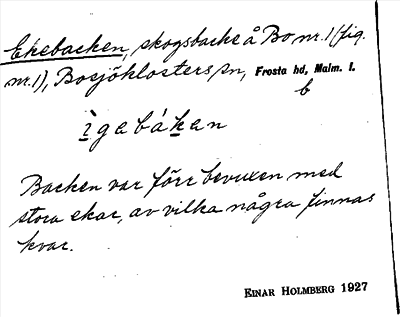 Ekebacken, skogsbacke å Bo nr. 1 (fig.
nr. 1), Bosjöklosters sn, Frosta hd, Malm. l.
b
ìgabákan
Backen var förr bevuxen med
stora ekar, av vilka några finnas
kvar.
EINAR HOLMBERG 1927